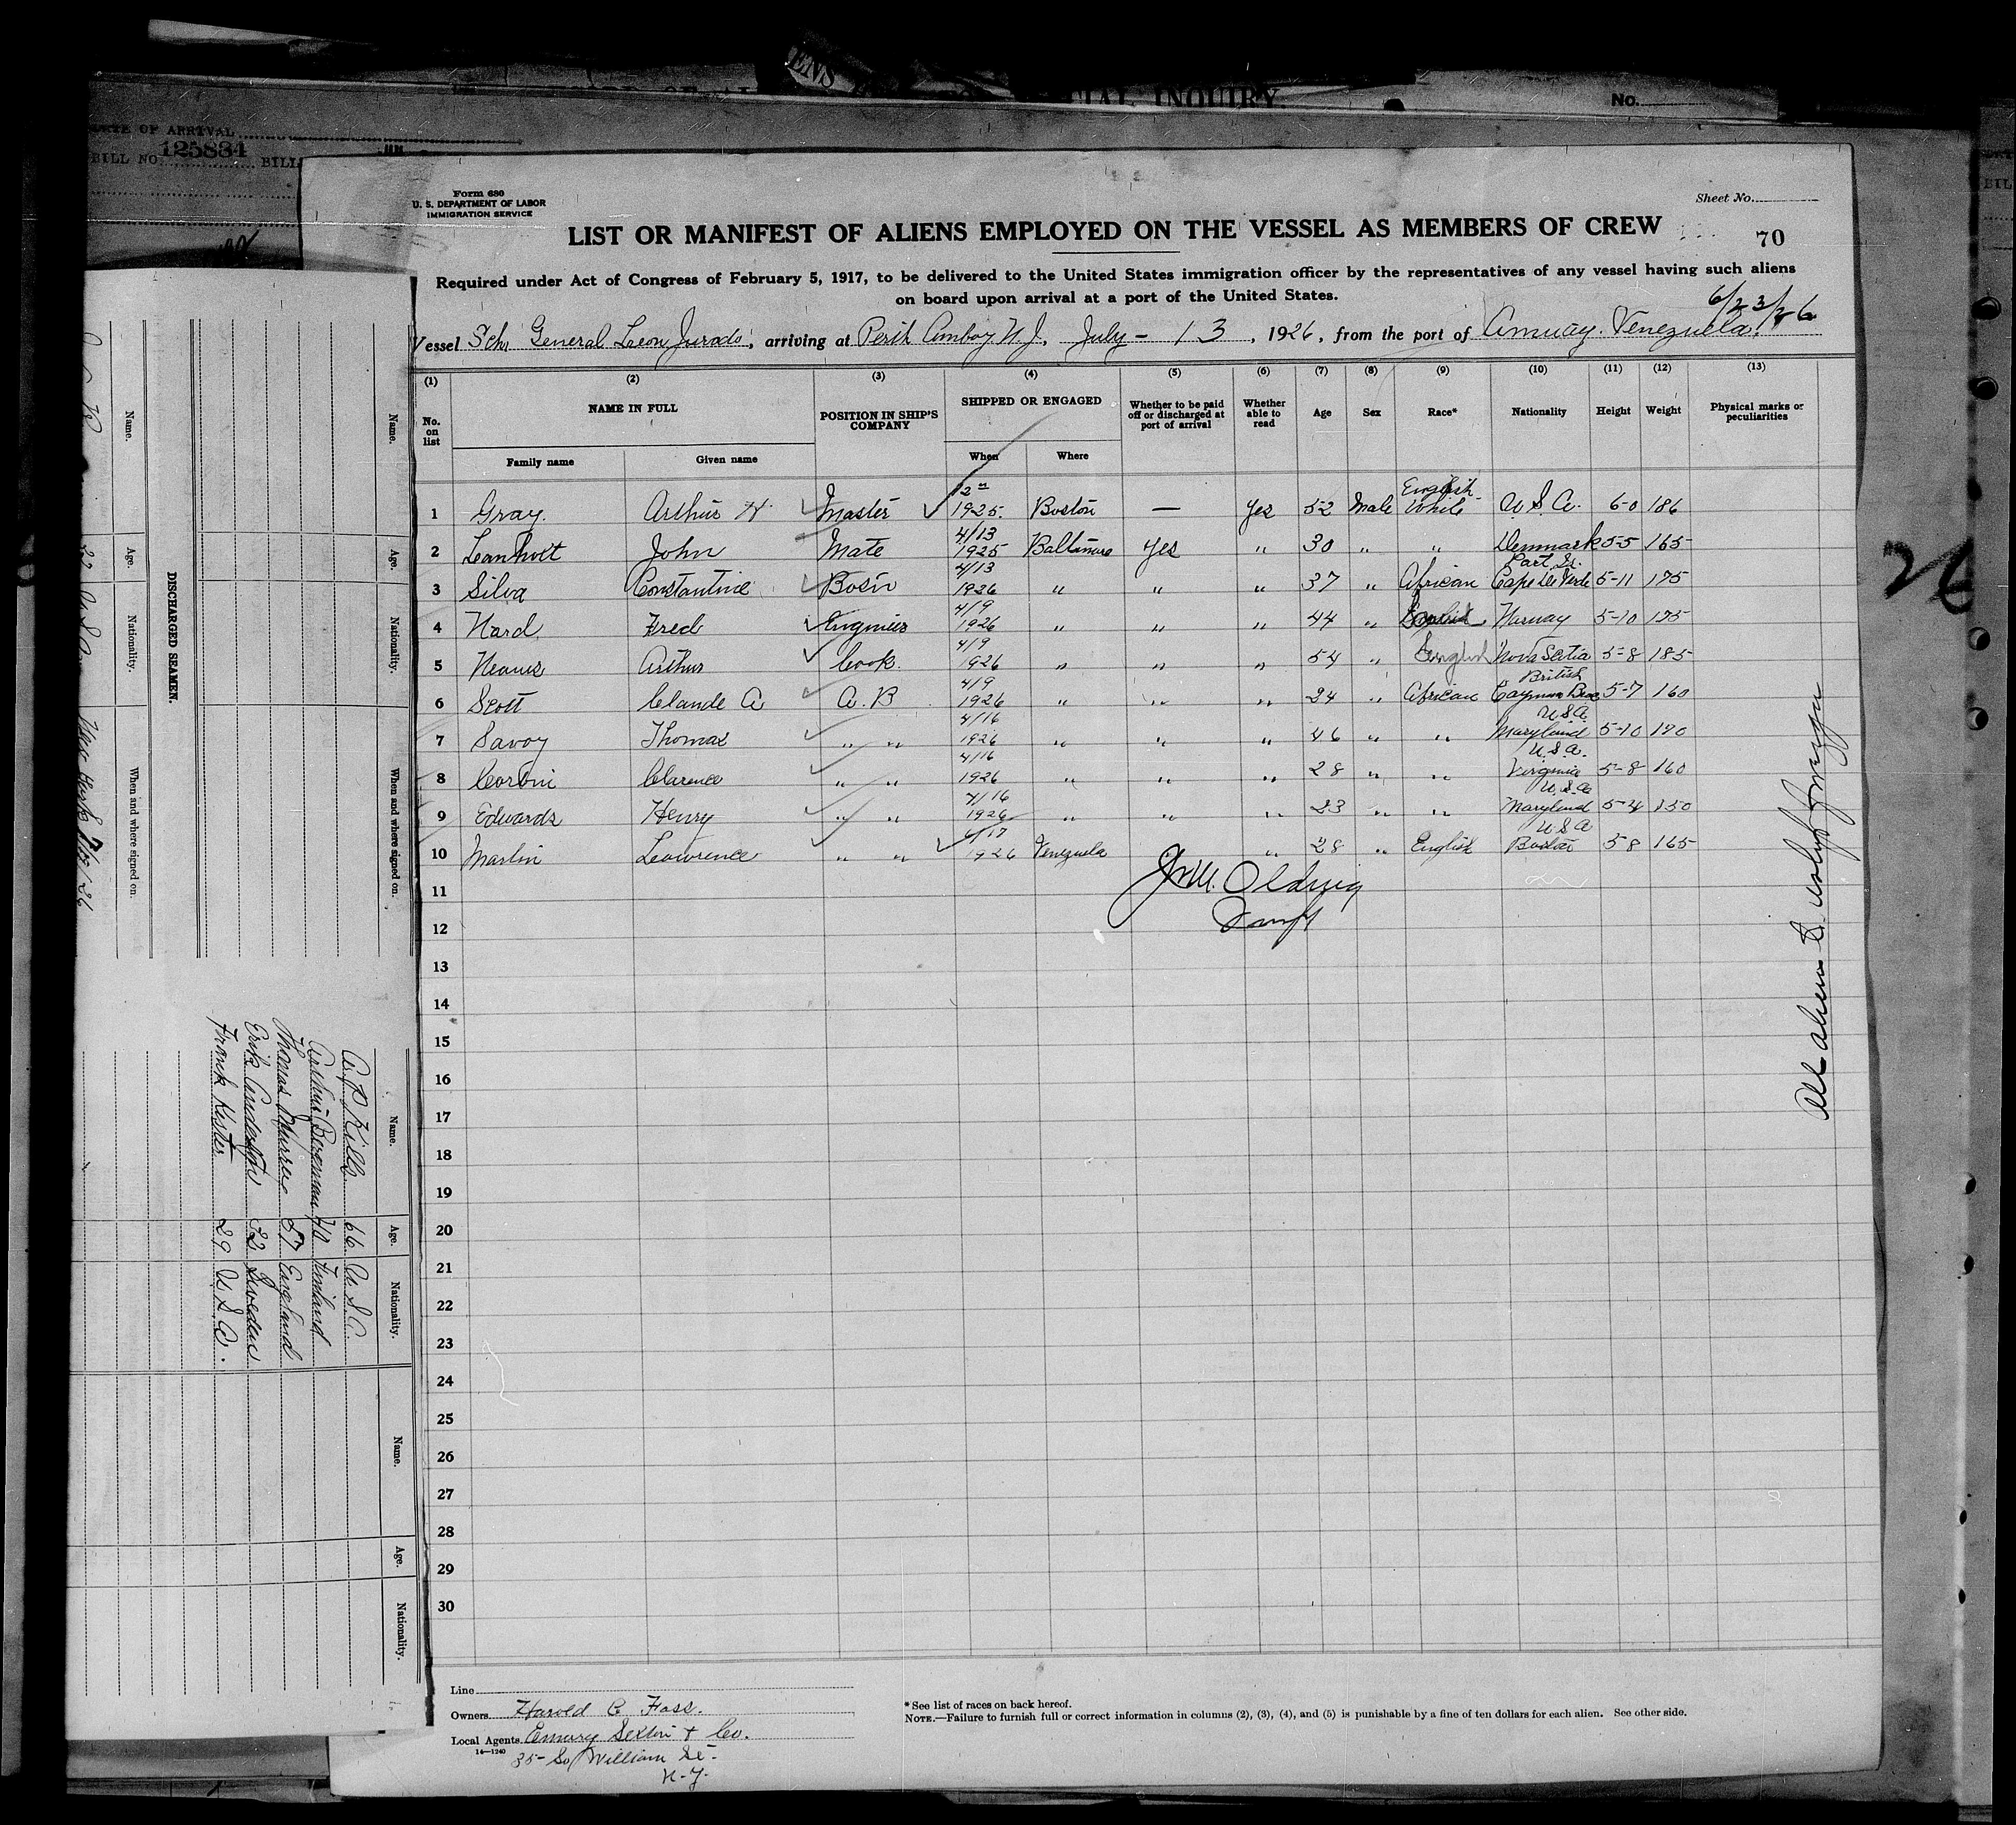 ENS
IAL INQUIRY
No.
DATE OF ARRIVAL
BILL NO. 125834 BILL
Form 680
U. S. DEPARTMENT OF LABOR
IMMIGRATION SERVICE
Sheet No.
LIST OR MANIFEST OF ALIENS EMPLOYED ON THE VESSEL AS MEMBERS OF CREW
70
Required under Act of Congress of February 5, 1917, to be delivered to the United States immigration officer by the representatives of any vessel having such aliens
on board upon arrival at a port of the United States.
6/23/26
Vessel Schr General Leon Jurado, arriving at Perth Amboy N.J. July - 13, 1926, from the port of Amuay. Venezuela.
(1) (2) (3) (4) (5) (6) (7) (8) (9) (10) (11) (12) (13)
No. on list NAME IN FULL POSITION IN SHIP'S COMPANY SHIPPED OR ENGAGED Whether to be paid off or discharged at port of arrival Whether able to read Age Sex Race* Nationality Height Weight Physical marks or peculiarities
Family name Given name When Where
1 Gray. Arthur H Master 1925. Boston — Yes 52 Male English White U.S.A. 6-0 186
2 John Mate 4/13 1925 Baltimore Yes " 30 " " Denmark 5-5 165
3 Silva Constantine Bos'n 4/13 1926 " " " 37 " African Cape de Verde 5-11 175
4 Fred Engineer 4/9 1926 " " " 44 " Norway 5-10 175
5 Arthur Cook. 4/9 1926 " " " 54 " English Nova Scotia 5-8 185
6 Scott Claude A A.B 4/9 1926 " " " 24 " African British Cayman 5-7 160
7 Savoy Thomas " " 4/16 1926 " " " 46 " " U.S.A. Maryland 5-10 170
8 Corbin Clarence " " 4/16 1926 " " " 28 " " U.S.A. Virginia 5-8 160
9 Edwards Henry " " 4/16 1926 " " " 23 " " U.S.A Maryland 5-4 150
10 Martin Lawrence " " 6/17 1926 Venezuela " 28 " English U S A Boston 5 8 165
11
12
13
14
15
16
17
18
19
20
21
22
23
24
25
26
27
28
29
30
All aliens
26
Line
Owners Harold C Foss.
Local Agents Emury Sexton + Co.
14—1240
35- So William St-
N-Y-
*See list of races on back hereof.
NOTE.—Failure to furnish full or correct information in columns (2), (3), (4), and (5) is punishable by a fine of ten dollars for each alien. See other side.
DISCHARGED SEAMEN.
Name. Age. Nationality. When and where signed on.
Name. Age. Nationality. When and where signed on.
22 U.S.A. New York
Name. Age. Nationality.
66 U.S.A.
Arthur Bergman 40 Finland
Thomas Murrey 57 England
Erik 32 Sweden
Frank Kester 29 U.S.A.
Name. Age. Nationality.